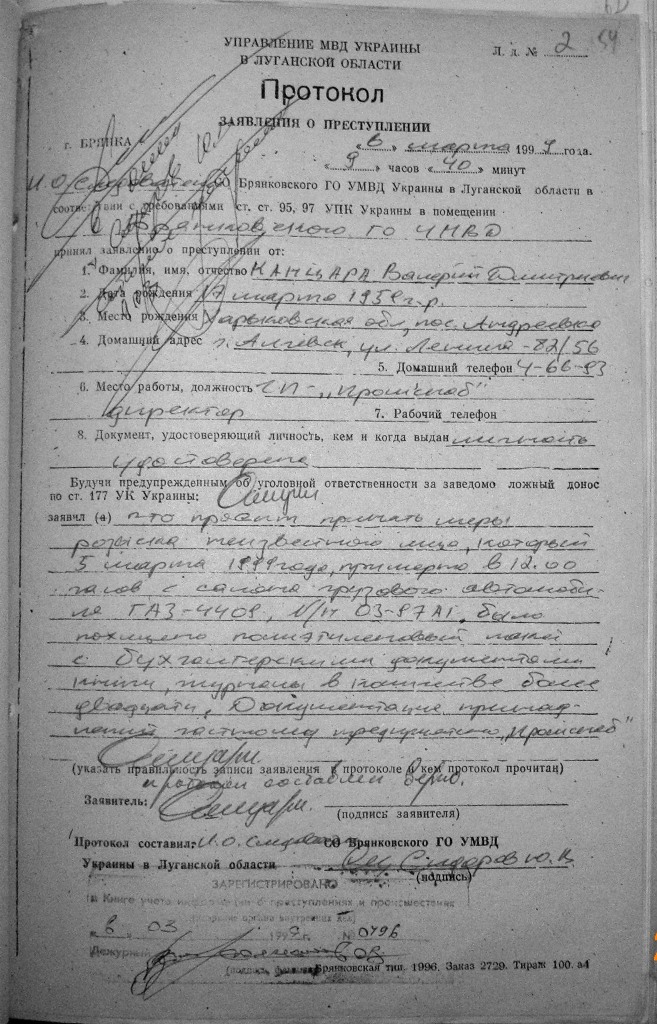 УПРАВЛЕНИЕ МВД УКРАИНЫ
В ЛУГАНСКОЙ ОБЛАСТИ
Л. д. № 2 54
Протокол
ЗАЯВЛЕНИЯ О ПРЕСТУПЛЕНИИ
г. БРЯНКА
« 6 » марта 1999 года.
« 9 » часов « 40 » минут
И.О. СО Брянковского ГО УМВД Украины в Луганской области в
соответствии с требованиями ст. ст. 95, 97 УПК Украины в помещении
Брянковского ГО УМВД
принял заявление о преступлении от:
1. Фамилия, имя, отчество Канцара Валерий Дмитриевич
2. Дата рождения 17 марта 1959 г.р.
3. Место рождения Харьковская обл, пос. Андреевка
4. Домашний адрес г. Алчевск, ул. Ленина-82/56
5. Домашний телефон 4-66-93
6. Место работы, должность ЧП-„Промснаб"
директор 7. Рабочий телефон
8. Документ, удостоверяющий личность, кем и когда выдан личность
удостоверена
Будучи предупрежденным об уголовной ответственности за заведомо ложный донос
по ст. 177 УК Украины:
заявил (а) что просит принять меры
розыска неизвестного лица, который
5 марта 1999 года, примерно в 12.00
часов с салона грузового автомоби-
ля ГАЗ-4409, N/Н 03-97АГ, было
похищено полиэтиленовый пакет
с бухгалтерскими документами
книги, журналы в количестве более
двадцати, Документация принад-
лежит частному предприятию „Промснаб"
(указать правильность записи заявления в протоколе и кем протокол прочитан)
протокол составлен верно.
Заявитель:
(подпись заявителя)
Протокол составил: И.О. следователя СО Брянковского ГО УМВД
Украины в Луганской области Сидоров Ю.В
(подпись)
ЗАРЕГИСТРИРОВАНО
в Книге учета информации о преступлениях и происшествиях
6 03 1999 г. № 0496
Дежурный
Брянковская тип. 1996. Заказ 2729. Тираж 100. а4